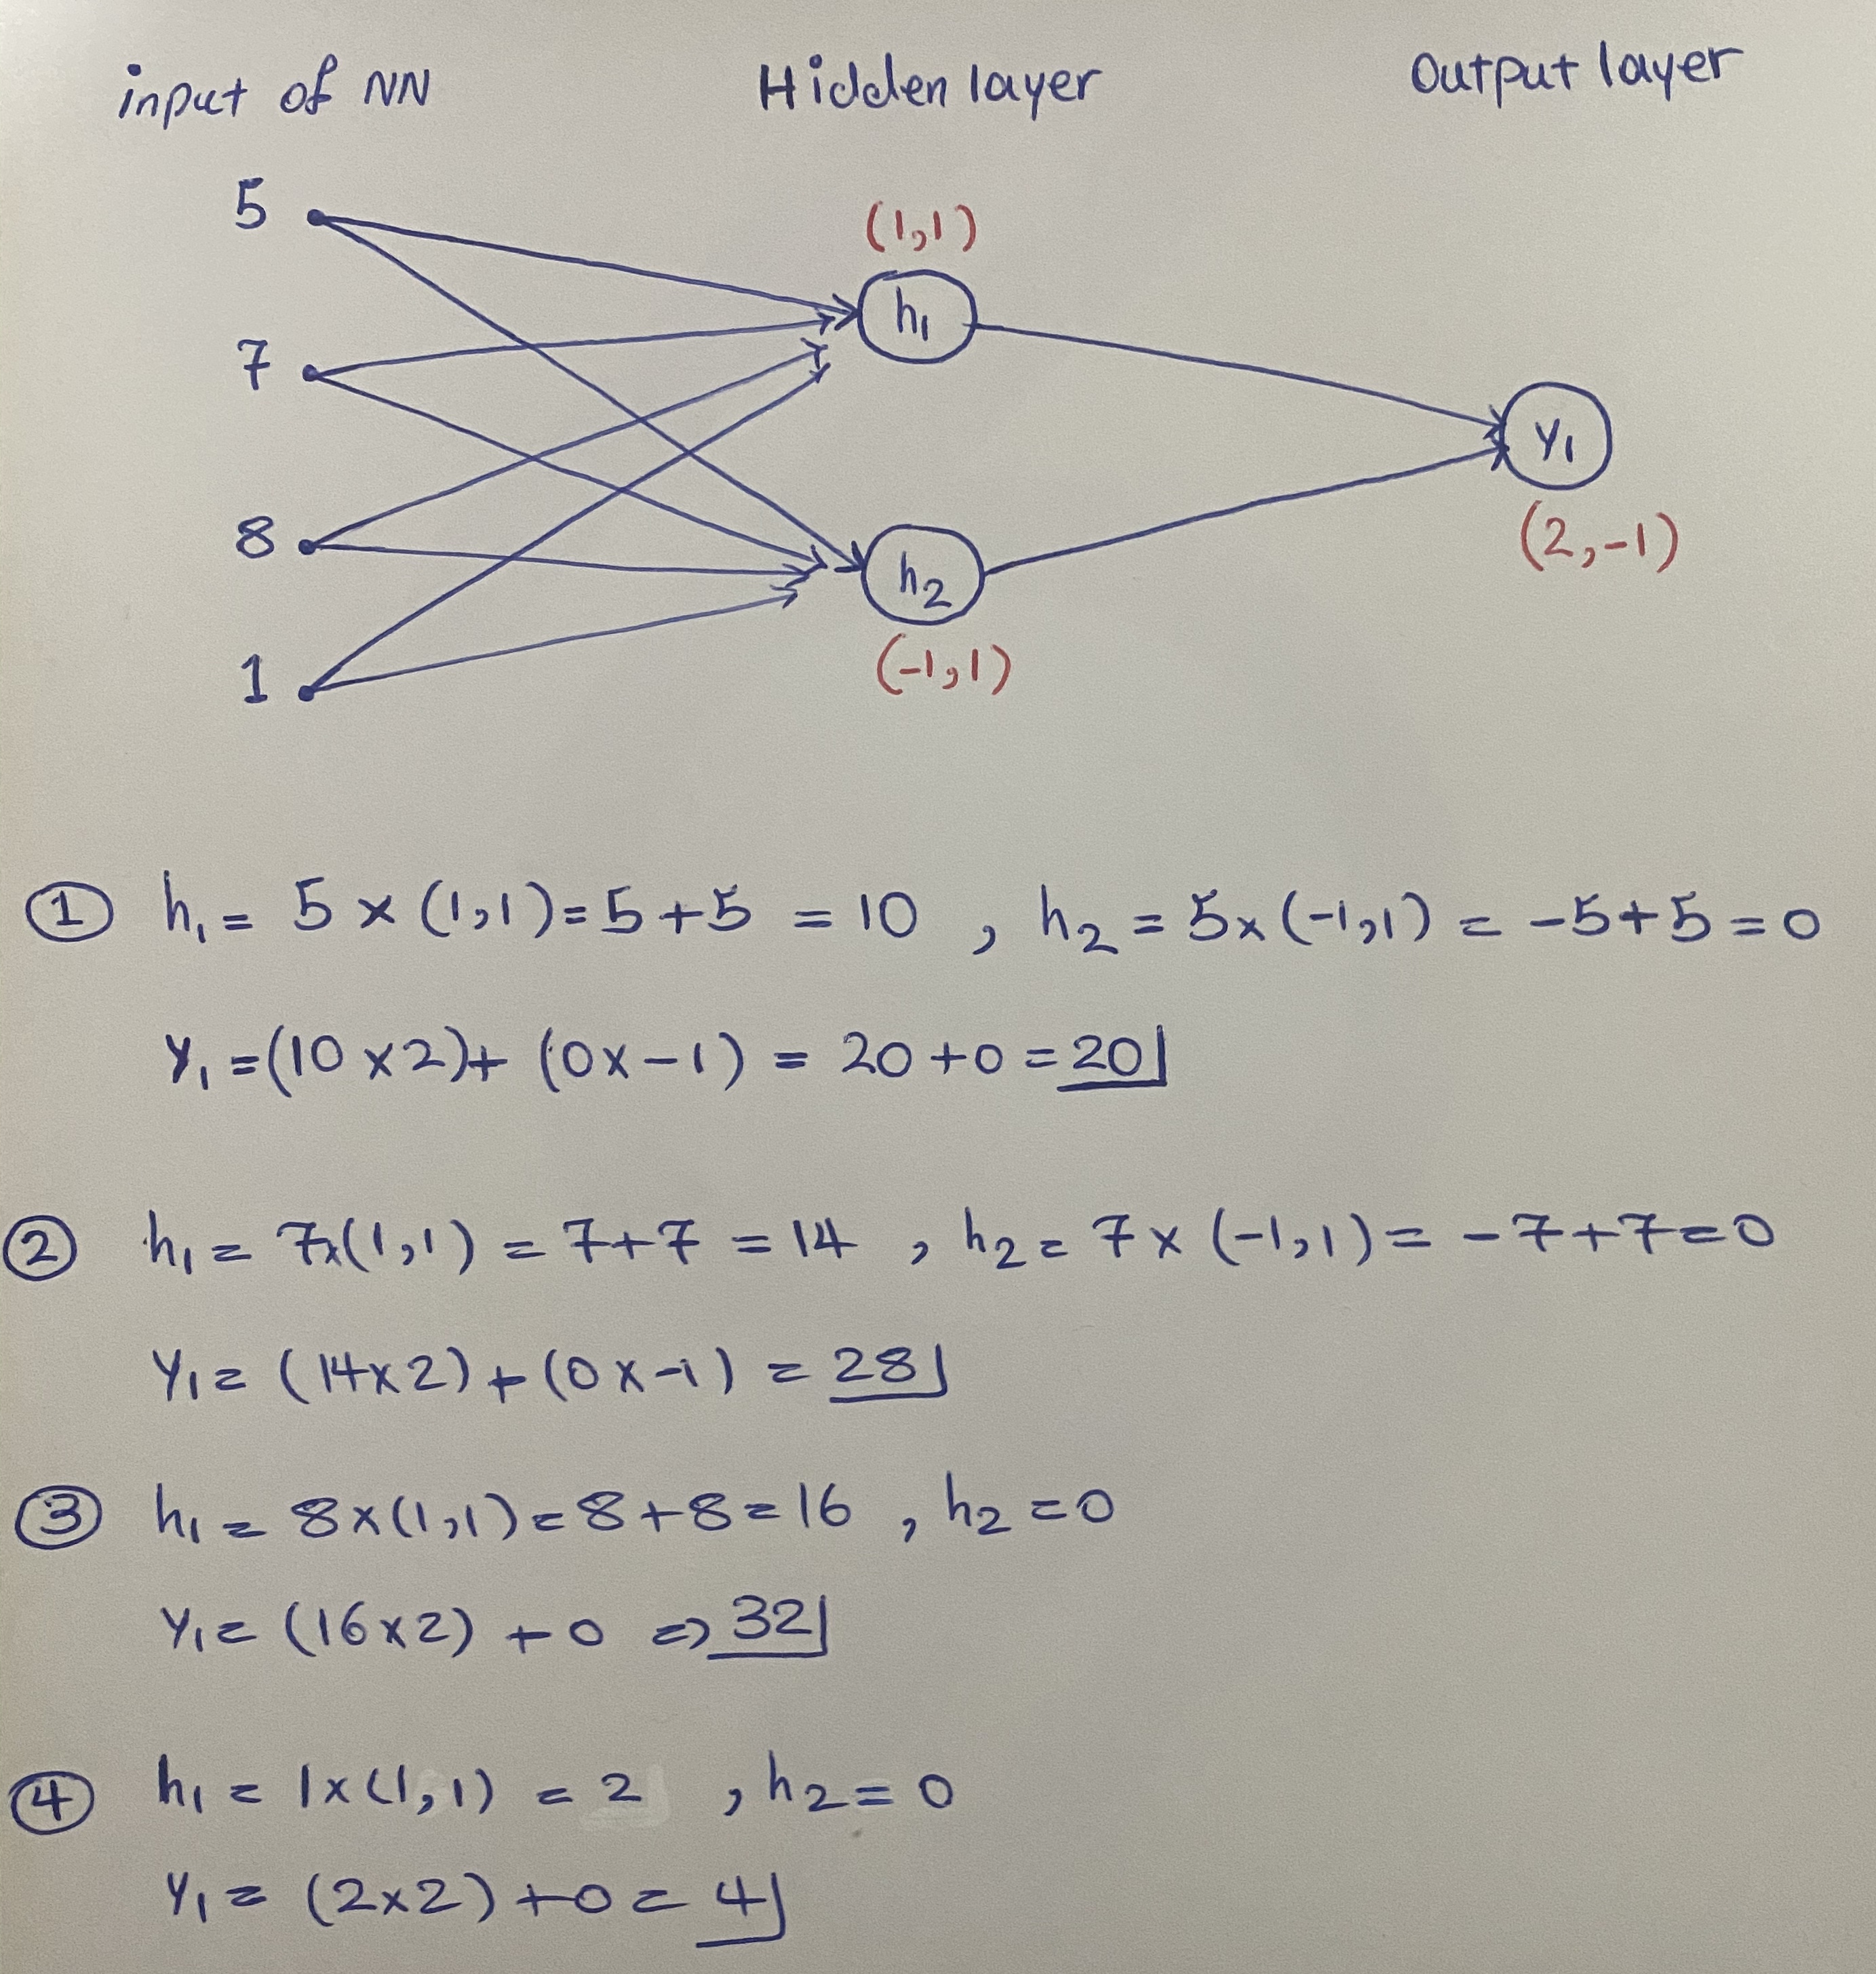 input of NN Hidden layer Output layer
5
(1,1)
h₁
7
y₁
8
(2,-1)
h₂
(-1,1)
1
① h₁ = 5 × (1,1) = 5+5 = 10 , h₂ = 5×(-1,1) = -5+5 = 0
y₁ = (10 × 2)+ (0×-1) = 20+0 = 20
② h₁ = 7×(1,1) = 7+7 = 14 , h₂ = 7 × (-1,1) = -7+7=0
y₁ = (14×2) + (0×-1) = 28
③ h₁ = 8×(1,1) = 8+8 = 16 , h₂ = 0
y₁ = (16×2) + 0 => 32
④ h₁ = 1×(1,1) = 2 , h₂ = 0
y₁ = (2×2) +0 = 4